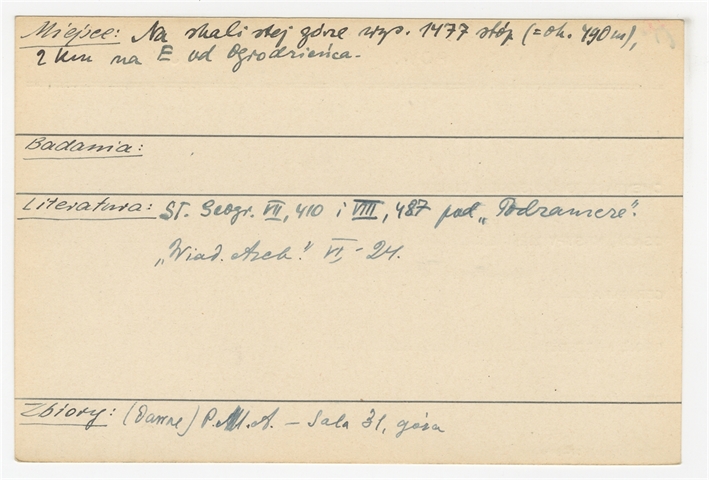 Miejsce: Na skalistej górze wys. 1477 stóp (=ok. 490 m),
2 km na E od Ogrodzieńca.
Badania:
Literatura: Sł. Geogr. VII, 410 i VIII, 487 pod „Podzamcze".
„Wiad. Arch." VI - 24.
Zbiory: (Dawne) P.M.A. – Sala 31, góra